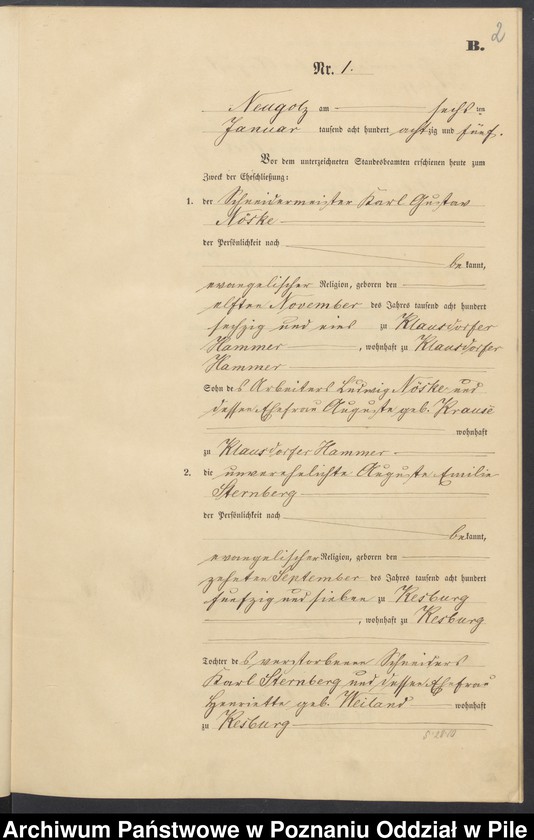 2
B.
Nr. 1.
Neugolz am sechsten
Januar tausend acht hundert achtzig und fünf.
Vor dem unterzeichneten Standesbeamten erschienen heute zum
Zweck der Eheschließung:
1. der Schneidermeister Karl Gustav
Nöske
der Persönlichkeit nach
bekannt,
evangelischer Religion, geboren den
elften November des Jahres tausend acht hundert
sechzig und eins zu Klausdorfer
Hammer, wohnhaft zu Klausdorfer
Hammer
Sohn des Arbeiters Ludwig Nöske und
dessen Ehefrau Auguste geb. Krause
wohnhaft
zu Klausdorfer Hammer
2. die unverehelichte Auguste Emilie
Sternberg
der Persönlichkeit nach
bekannt,
evangelischer Religion, geboren den
zehnten September des Jahres tausend acht hundert
funfzig und sieben zu Kesburg
, wohnhaft zu Kesburg
Tochter des verstorbenen Schneiders
Karl Sternberg und dessen Ehefrau
Henriette geb. Weiland wohnhaft
zu Kesburg
Archiwum Państwowe w Poznaniu Oddział w Pile